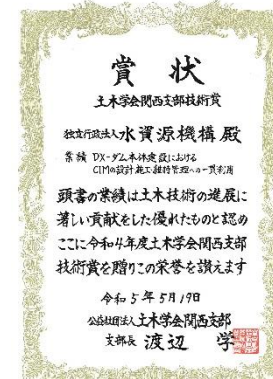 賞状
土木学会関西支部技術賞
独立行政法人水資源機構 殿
業績 DX-ダム本体建設における
CIMの設計・施工・維持管理への一貫利用
頭書の業績は土木技術の進展に
著しい貢献をした優れたものと認め
ここに令和4年度土木学会関西支部
技術賞を贈りこの栄誉を讃えます
令和5年5月19日
公益社団法人土木学会関西支部
支部長 渡辺 学